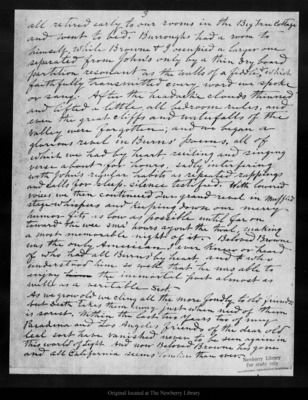 3
all retired early to our rooms in the Big Tree Cottage
and went to bed. Burroughs had a room to
himself, while Browne & I occupied a larger one
separated from John's only by a thin dry board
partition resonant as the walls of a fiddle, which
faithfully transmitted every word we spoke
or sang. After the candle the clouds thinned
and lifted a little all bedroom rules, and
even the great cliffs and waterfalls of the
valley were forgotten, and we began a
glorious revel in Burns' Poems, all of
which we had by heart reciting and singing
verse about for hours, sadly interfering
with John's regular habits as repeated rappings
and calls for sleep silence testified. With lowered
voices we then continued our grand revel in muffled
stage whispers and keeping down our merry-
humor fits as low as possible until far on
toward the wee sma hours ayont the twal, making
a most memorable night of it. Beloved Browne
was the only American I ever knew or heard
of who had all Burns by heart and who
understood him so well that he was able to
enjoy the immortal poet almost as
well as a veritable Scot.
As we grow old we cling all the more fondly to old friends
but Death takes them away just when need of them
is sorest. Within the last two years two of my
Pasadena and Los Angeles friends of the dear old
leal sort have vanished never to be seen again in
this world of light. And now Beloved Browne has gone
and all California seems lonelier than ever.
Newberry Library
For study only
Original located at The Newberry Library